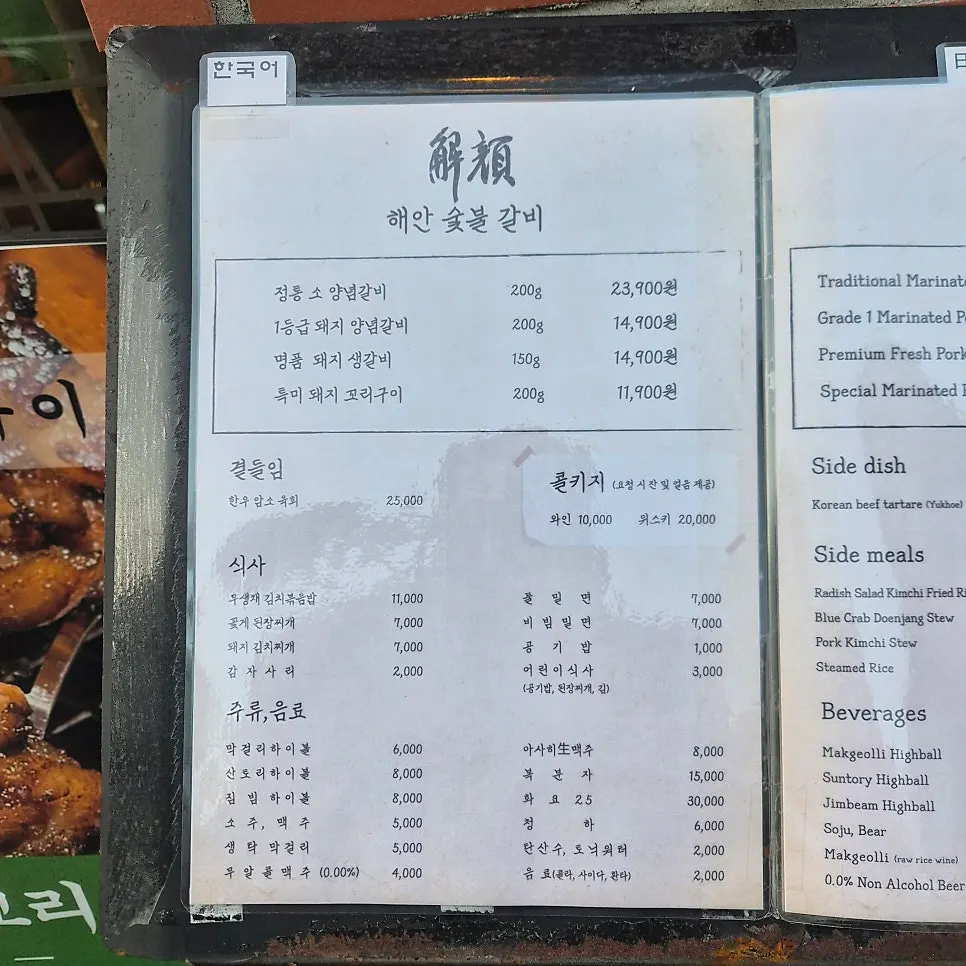 한국어
解顔
해안 숯불 갈비
정통 소 양념갈비 200g 23,900원
1등급 돼지 양념갈비 200g 14,900원
명품 돼지 생갈비 150g 14,900원
특미 돼지 꼬리구이 200g 11,900원
곁들임
한우 암소 육회 25,000
콜키지 (요청 시 잔 및 얼음 제공)
와인 10,000 위스키 20,000
식사
무생채 김치볶음밥 11,000
꽃게 된장찌개 7,000
돼지 김치찌개 7,000
감자사리 2,000
물밀면 7,000
비빔밀면 7,000
공기밥 1,000
어린이식사 3,000
(공기밥, 된장찌개, 김)
주류,음료
막걸리하이볼 6,000
산토리하이볼 8,000
짐빔하이볼 8,000
소주, 맥주 5,000
생탁 막걸리 5,000
무알콜맥주 (0.00%) 4,000
아사히生맥주 8,000
복분자 15,000
화요25 30,000
청하 6,000
탄산수, 토닉워터 2,000
음료(콜라, 사이다, 환타) 2,000
Traditional
Grade 1 Marinated
Premium Fresh Pork
Special Marinated
Side dish
Korean beef tartare (Yukhoe)
Side meals
Radish Salad Kimchi Fried
Blue Crab Doenjang Stew
Pork Kimchi Stew
Steamed Rice
Beverages
Makgeolli Highball
Suntory Highball
Jimbeam Highball
Soju, Bear
Makgeolli (raw rice wine)
0.0% Non Alcohol Beer
이
리